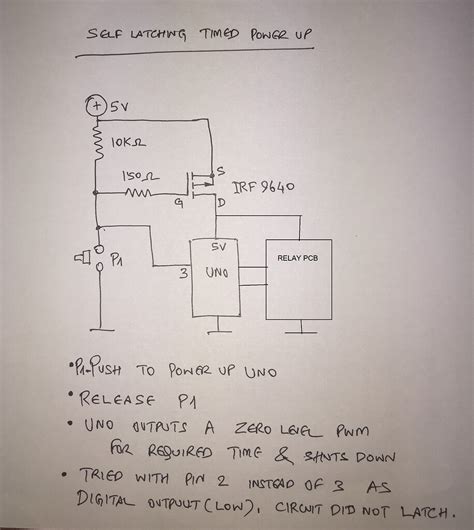 SELF LATCHING TIMED POWER UP
+ 5V
10KΩ
150Ω
S
IRF9640
G
D
P1
3
5V
UNO
RELAY PCB
• P1-PUSH TO POWER UP UNO
• RELEASE P1
• UNO OUTPUTS A ZERO LEVEL PWM
FOR REQUIRED TIME & SHUTS DOWN
• TRIED WITH PIN 2 INSTEAD OF 3 AS
DIGITAL OUTPUT (LOW), CIRCUIT DID NOT LATCH.